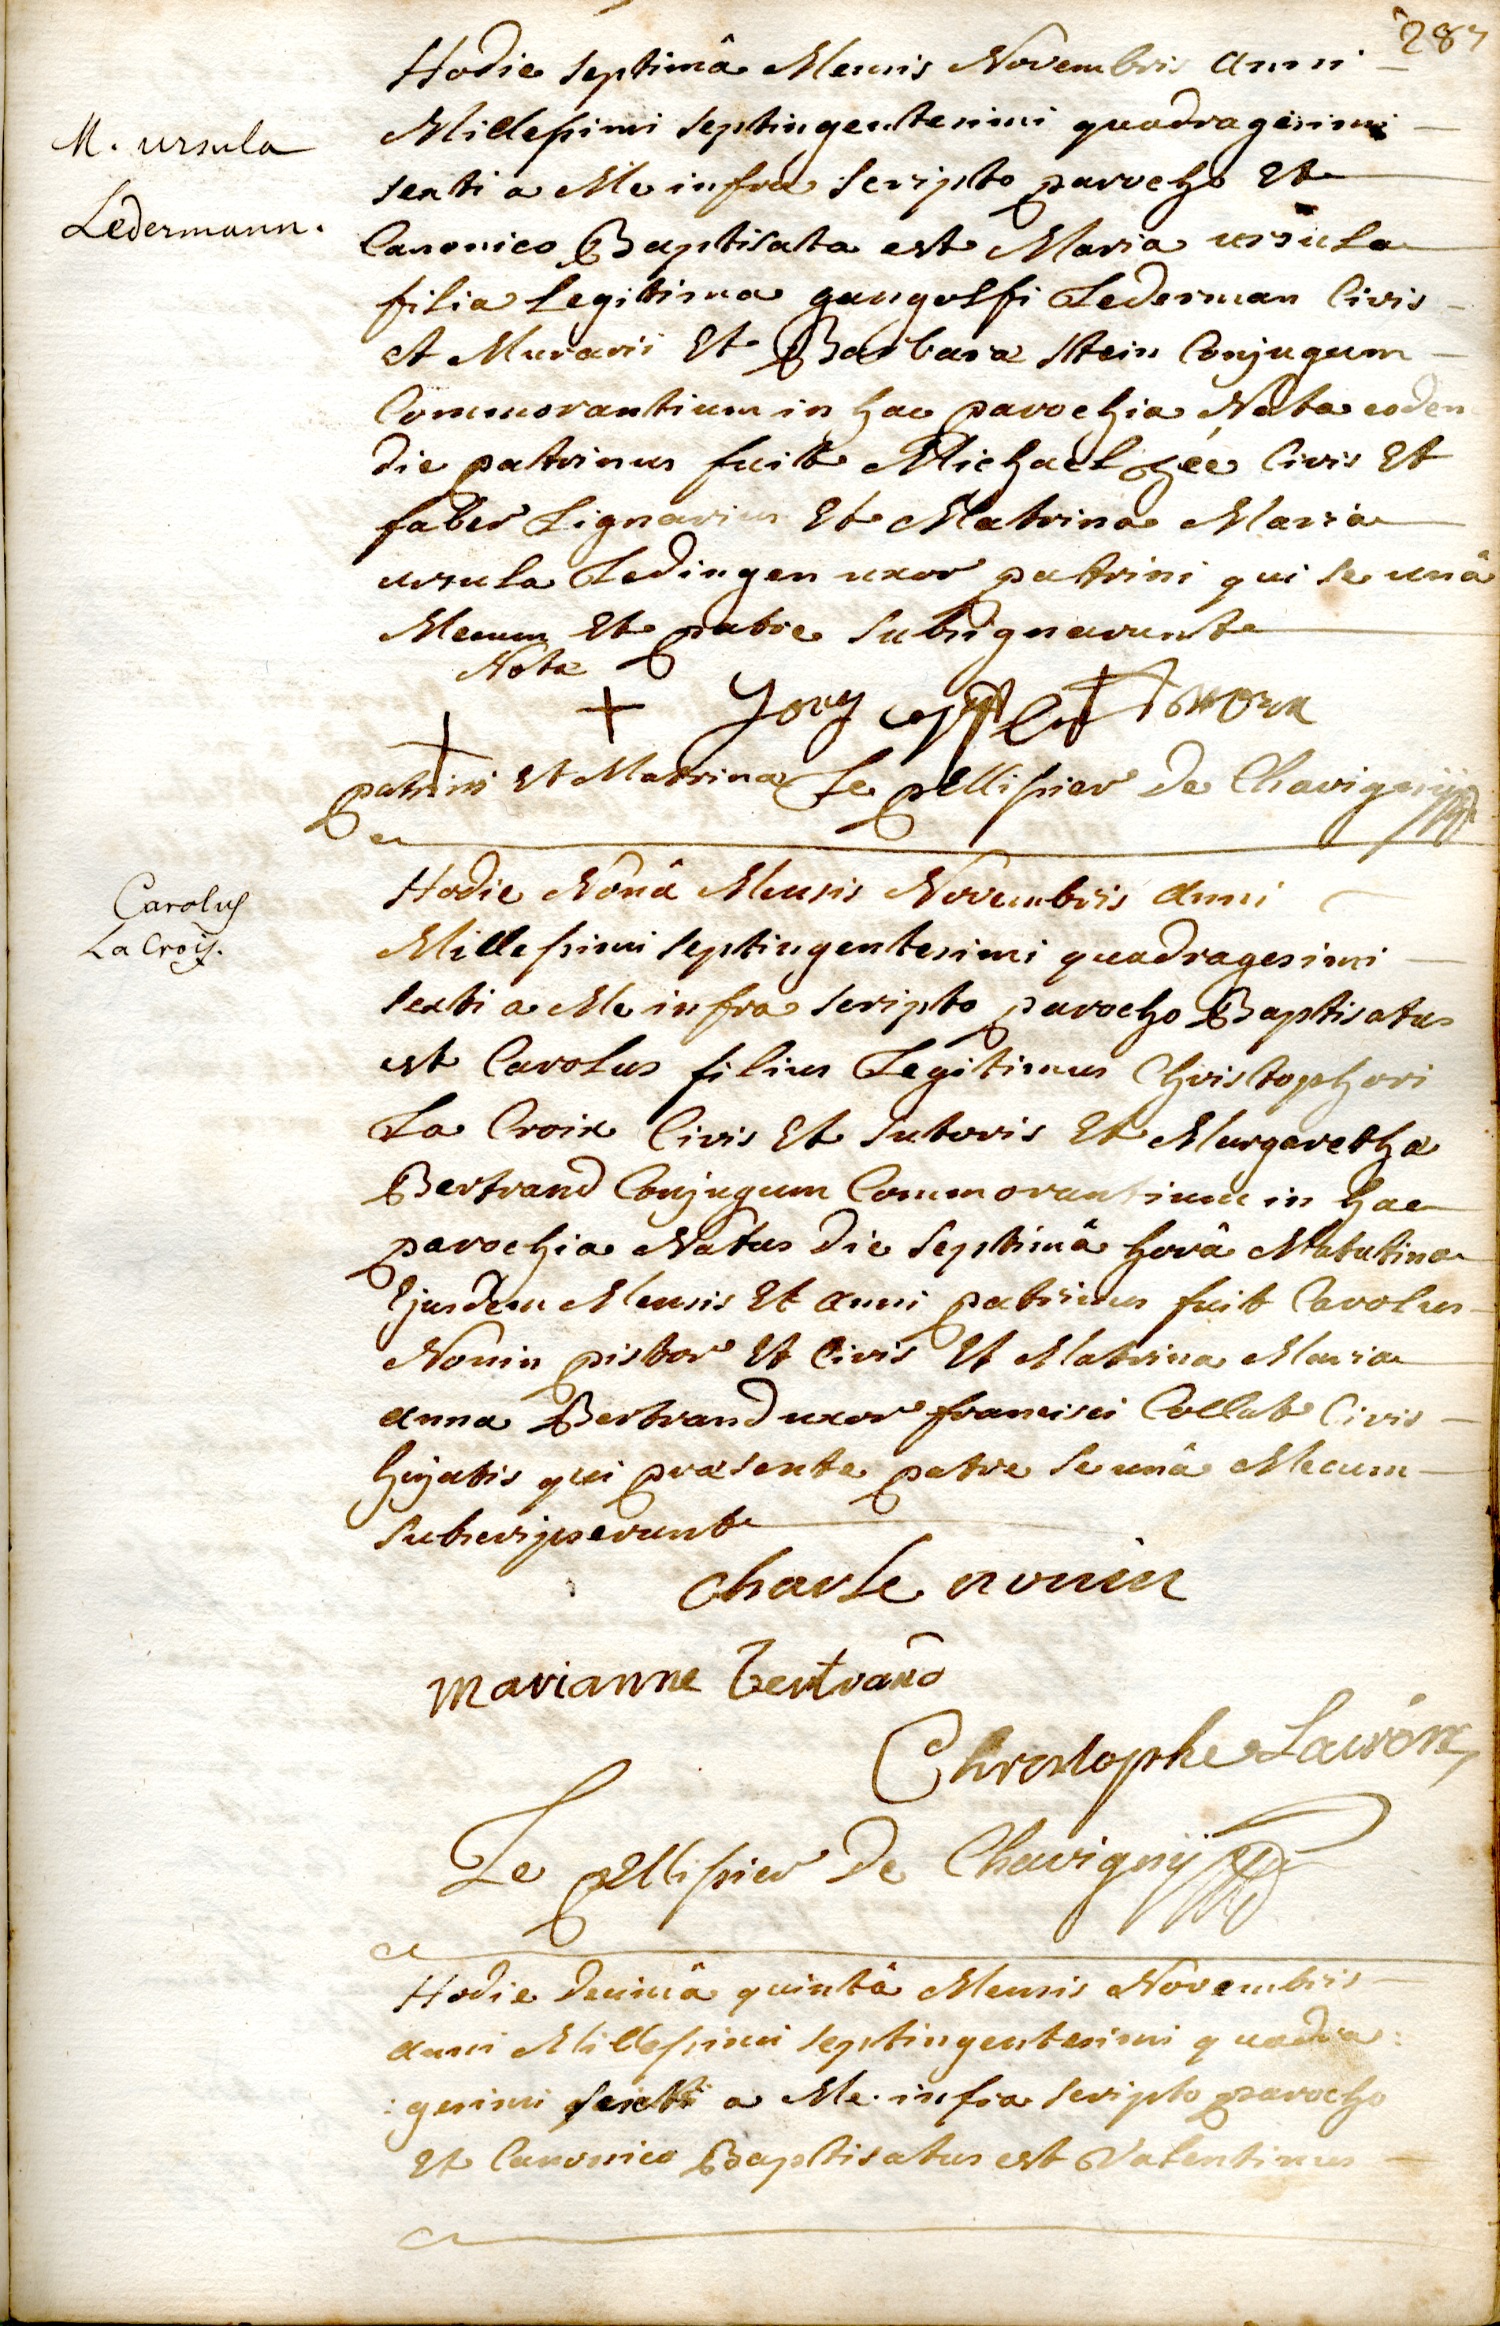 287
M. ursula
Ledermann.
Hodie septimâ Mensis Novembris anni
Millesimi septingentesimi quadragesimi
sexti a Me infra scripto parocho Et
Canonico Baptisata est Maria ursula
filia Legitima gangolfi Lederman Civis
et Murarii Et Barbaræ Stein Conjugum
Commorantium in hac parochia Nata eoden
die patrinus fuit Michael Civis Et
faber Lignarius Et Matrina Maria
ursula Ledingen uxor patrini qui se unâ
Mecum Et patre subsignarunt
Notæ
patrini Et Matrinæ Le pellissier de Chavignÿ
Carolus
La Croix.
Hodie Nonâ Mensis Novembris anni
Millesimi septingentesimi quadragesimi
sexti a Me infra scripto parocho Baptisatus
est Carolus filius Legitimus Christophori
La Croix Civis Et sutoris Et Margarethæ
Bertrand Conjugum Commorantium in hac
parochia Natus die septimâ horâ Matutina
Ejusdem Mensis Et anni patrinus fuit Carolus
Nonin pistor Et Civis Et Matrina Maria
anna Bertrand uxor francisci Collat Civis
hujatis qui præsente patre se unâ Mecum
subscripserunt
charle nonin
marianne bertrand
Christophe Lacroix
Le pellissier de Chavignÿ
Hodie decimâ quintâ Mensis Novembris
anni Millesimi septingentesimi quadra:
:gesimi sexti a Me infra scripto parocho
Et Canonico Baptisatus est Valentinus